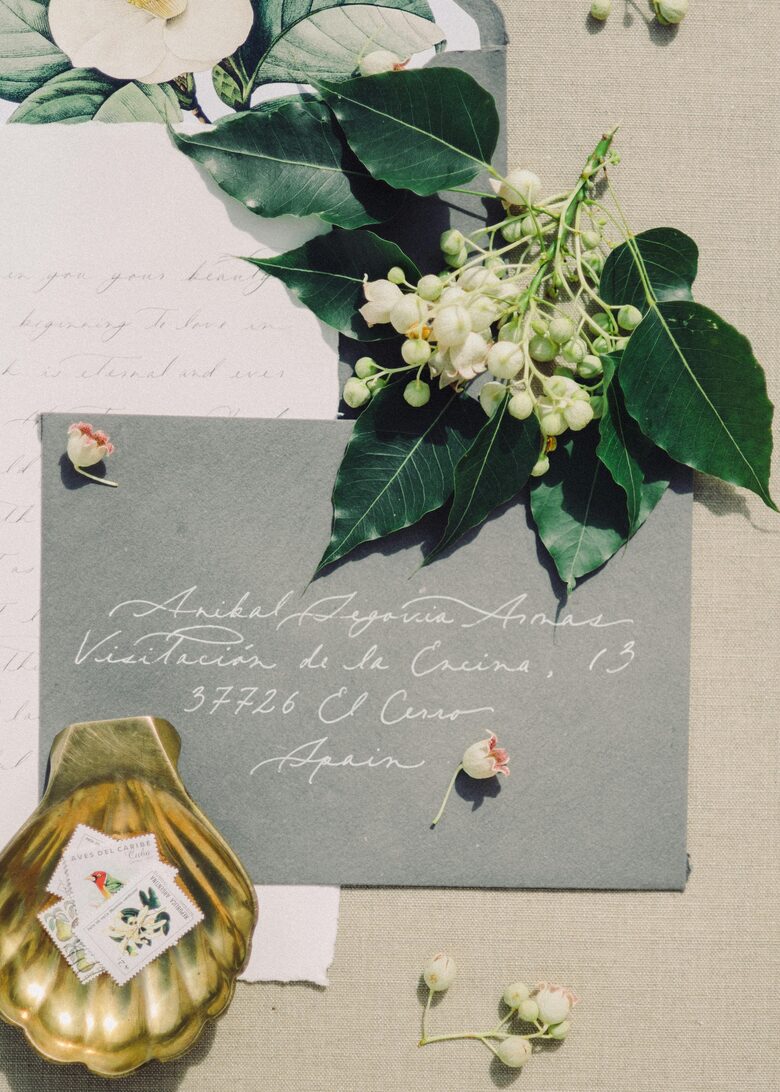 in you your beauty
beginning to love in
is eternal and ever
Anibal Segovia Armas
Visitación de la Encina, 13
37726 El Cerro
Spain
AVES DEL CARIBE
Cuba
REPUBLICA ARGENTINA